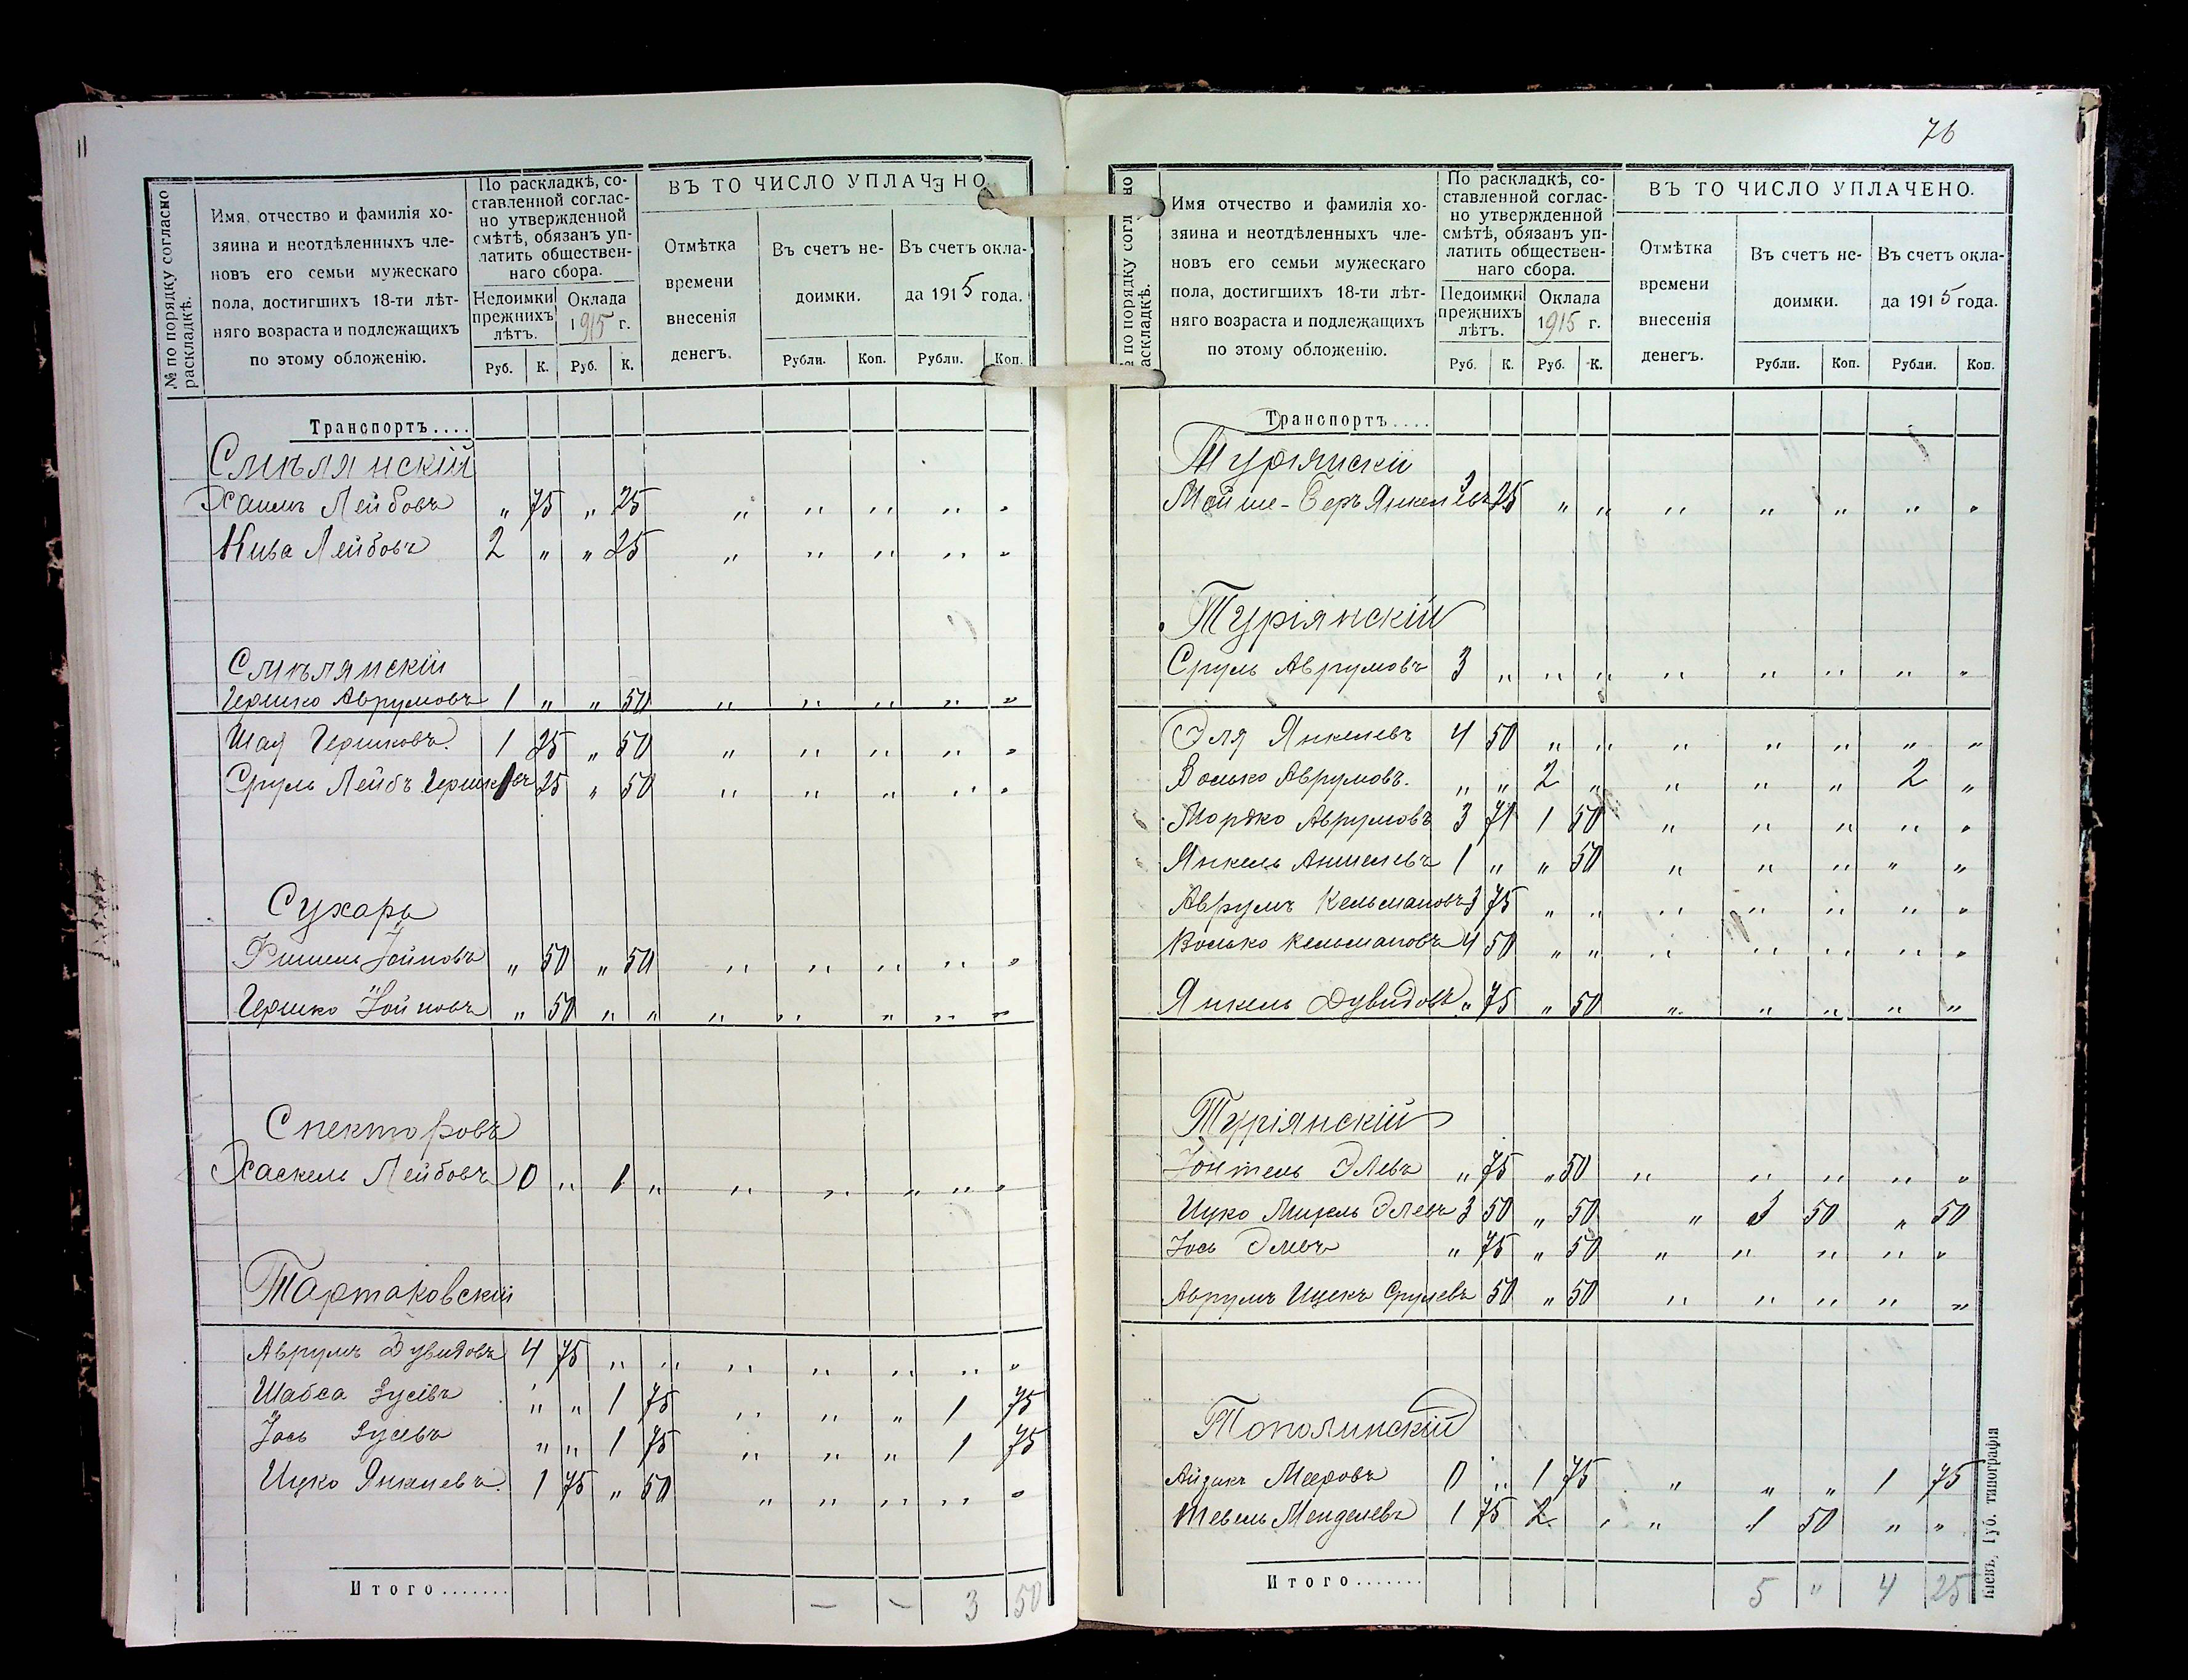 № по порядку согласно раскладкѣ.
Имя, отчество и фамилія хо-
зяина и неотдѣленныхъ чле-
новъ его семьи мужескаго
пола, достигшихъ 18-ти лѣт-
няго возраста и подлежащихъ
по этому обложенію.
По раскладкѣ, со-
ставленной соглас-
но утвержденной
смѣтѣ, обязанъ уп-
латить обществен-
наго сбора.
Недоимки прежнихъ лѣтъ.
Оклада 1915 г.
Руб. К. Руб. К.
ВЪ ТО ЧИСЛО УПЛАЧЕНО.
Отмѣтка
времени
внесенія
денегъ.
Въ счетъ не-
доимки.
Въ счетъ окла-
да 1915 года.
Рубли. Коп. Рубли. Коп.
Транспортъ....
Смѣлянскій
Хаимъ Лейбовъ " 75 " 25 " " " " "
Кива Лейбовъ 2 " " 25 " " " " "
Смѣлянскій
Гершко Аврумовъ 1 " " 50 " " " " "
Шая Гершковъ. 1 25 " 50 " " " " "
Сруль Лейбъ Гершковъ 1 25 " 50 " " " " "
Сухарь
Фишель Іойновъ " 50 " 50 " " " " "
Гершко Іойновъ " 50 " " " " " " "
Спекторовъ
Хаскель Лейбовъ 0 " 1 " " " " " "
Тартаковскій
Аврумъ Дувидовъ 4 75 " " " " " " "
Шабса Зусевъ " " 1 75 " " " 1 75
Іось Зусевъ " " 1 75 " " " 1 75
Ицко Янкелевъ. 1 75 " 50 " " " " "
Итого....... — — 3 50
76
№ по порядку согласно раскладкѣ.
Имя отчество и фамилія хо-
зяина и неотдѣленныхъ чле-
новъ его семьи мужескаго
пола, достигшихъ 18-ти лѣт-
няго возраста и подлежащихъ
по этому обложенію.
По раскладкѣ, со-
ставленной соглас-
но утвержденной
смѣтѣ, обязанъ уп-
латить обществен-
наго сбора.
Недоимки прежнихъ лѣтъ.
Оклада 1915 г.
Руб. К. Руб. К.
ВЪ ТО ЧИСЛО УПЛАЧЕНО.
Отмѣтка
времени
внесенія
денегъ.
Въ счетъ не-
доимки.
Въ счетъ окла-
да 1915 года.
Рубли. Коп. Рубли. Коп.
Транспортъ....
Турянскій
Мойше-Беръ Янкелевъ 3 25 " " " " " " "
Туріянскій
Сруль Аврумовъ 3 " " " " " " " "
Эля Янкелевъ 4 50 " " " " " " "
Волько Аврумовъ. " " 2 " " " " 2 "
Мордко Аврумовъ 3 71 1 50 " " " " "
Янкель Аншелевъ 1 " " 50 " " " " "
Аврумъ Кельмановъ 3 75 " " " " " " "
Волько Кельмановъ 4 50 " " " " " " "
Янкель Дувидовъ " 75 " 50 " " " " "
Туріянскій
Іонтель Элевъ " 75 " 50 " " " " "
Ицко Михель Элевъ 3 50 " 50 " 3 50 " 50
Іось Элевъ " 75 " 50 " " " " "
Аврумъ Ицекъ Срулевъ 50 " 50 " " " " "
Тополинскій
Айзикъ Мееровъ 0 " 1 75 " " " 1 75
Тевель Менделевъ 1 75 2 " " 1 50 " "
Итого....... 5 " 4 25
Кіевъ, Губ. типографія